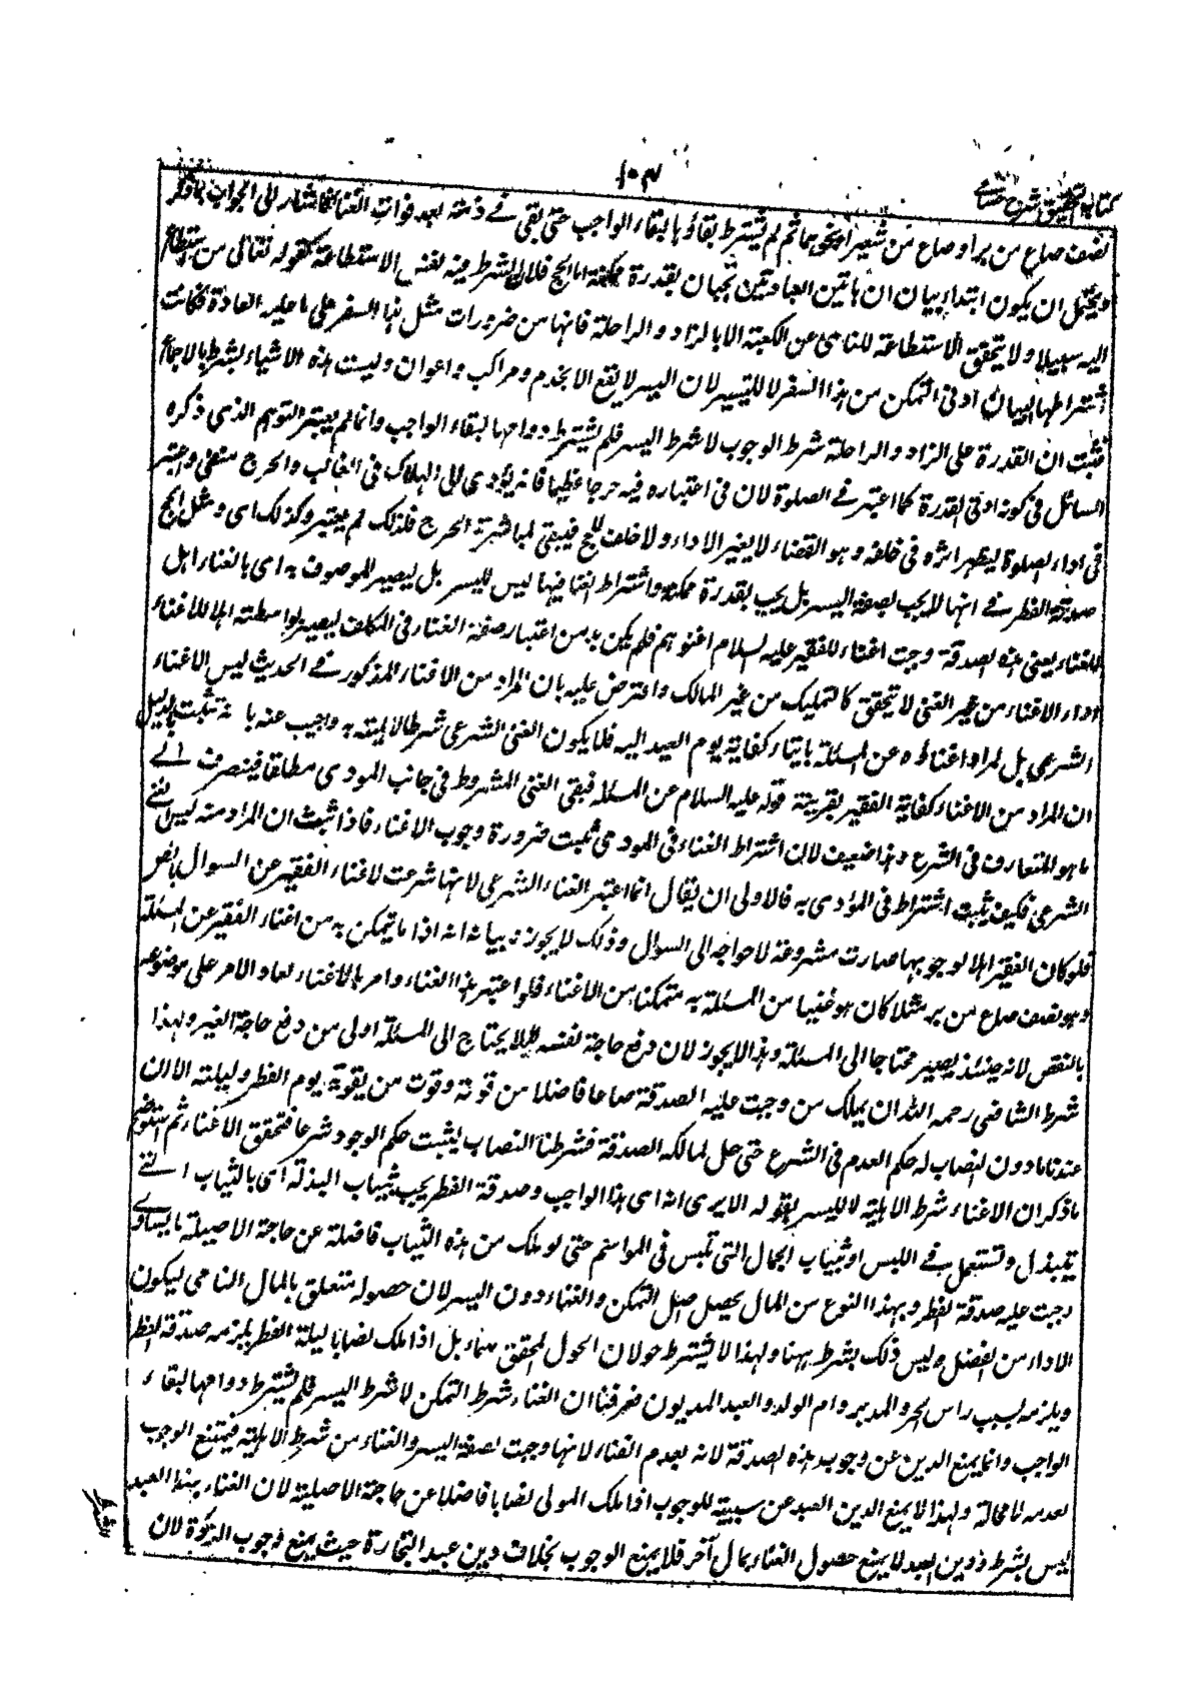 كتاب التحقيق شرح حسامي
١٠٣
نصف صاع من بر او صاع من شعير او نحوهما ثم لم يشترط بقاؤها لبقاء الواجب حتى بقي في ذمته بعد فوات الغنا فاشار الى الجواب بما ذكر
ويحتمل ان يكون ابتداء بيان ان هاتين العبادتين تجبان بقدرة ممكنة اما الحج فلان الشرط فيه نفس الاستطاعة كقوله تعالى من استطاع
اليه سبيلا ولا يتحقق الاستطاعة للنائي عن الكعبة الا بالزاد والراحلة فانها من ضرورات مثل هذا السفر على ما عليه العادة فكانت
اشتراطهما لبيان ادنى التمكن من هذا السفر لا للتيسير لان اليسر لا يقع الا بخدم ومراكب واعوان وليست هذه الاشياء بشرط بالاجماع
فثبت ان القدرة على الزاد والراحلة شرط الوجوب لا شرط اليسر فلم يشترط دوامها لبقاء الواجب وانما لم يعتبر التوهم الذي ذكره
السائل في كونه ادنى القدرة كما اعتبر في الصلوة لان في اعتباره فيه حرجا عظيما فانه يؤدي الى الهلاك في الغالب والحرج منفي واعتبر
في اداء الصلوة ليظهر اثره في خلفه وهو القضاء لا لغير الاداء ولا خلف للحج فيبقى لمباشرة الحرج فلذلك لم يعتبر وكذلك اى ومثل الحج
صدقة الفطر في انها لا يجب بصفة اليسر بل يجب بقدرة ممكنة واشتراط الغنا فيها ليس لليسر بل ليصير الموصوف به اى بالغناء اهل
للاغناء يعنى هذه الصدقة وجبت اغناء للفقير عليه السلام اغنوهم فلم يكن بد من اعتبار صفة الغناء في المكلف ليصير بواسطته اهلا للاغناء
اداء الاغناء من غير الغنى لا يتحقق كالتمليك من غير المالك واعترض عليه بان المراد من الاغناء المذكور في الحديث ليس الاغناء
الشرعي بل المراد اغناؤه عن المسئلة بايتاء كفاية يوم العيد اليه فلا يكون الغنى الشرعي شرطا لاهليته واجيب عنه بانه ثبت بالدليل
ان المراد من الاغناء كفاية الفقير بقرينة قوله عليه السلام عن المسئلة فبقي الغنى المشروط في جانب المودى مطلقا فينصرف الى
ما هو المتعارف في الشرع وهذا ضعيف لان اشتراط الغناء في المودى يثبت ضرورة وجوب الاغناء فاذا ثبت ان المراد منه ليس الغنى
الشرعي فكيف يثبت اشتراط في المؤدى به فالاولى ان يقال انما اعتبر الغناء الشرعي لانها شرعت لاغناء الفقير عن السوال بالنص
فلو كان الفقير اهلا لوجوبها صارت مشروعة لاحواجه الى السوال وذلك لا يجوز وبيانه انه اذا ما يتمكن به من اغناء الفقير عن المسئلة
وهو نصف صاع من بر مثلا كان هو غنيا من المسئلة به متمكنا من الاغناء فلو اعتبر هذا الغناء وامر بالاغناء لعاد الامر على موضوعه
بالنقض لانه حينئذ يصير محتاجا الى المسئلة وهذا لا يجوز لان دفع حاجة نفسه لئلا يحتاج الى المسئلة اولى من دفع حاجة الغير ولهذا
شرط الشافعي رحمه الله ان يملك من وجبت عليه الصدقة صاعا فاضلا من قوته وقوت من يقوته يوم الفطر وليلته الا ان
عندنا ما دون النصاب له حكم العدم في الشرع حتى حل لمالكه الصدقة فشرطنا النصاب ليثبت حكم الوجود شرعا فتحقق الاغناء ثم استوضح
ما ذكر ان الاغناء شرط الاهلية لا لليسر بقوله الا يرى انه اى هذا الواجب وصدقة الفطر يجب بثياب البذلة اى بالثياب التي
يتبذل وتستعمل في اللبس او بثياب الجمال التي تلبس في المواسم حتى لو ملك من هذه الثياب فاضلة عن حاجة الاصيلة ما يساوى
وجبت عليه صدقة الفطر وبهذا النوع من المال يحصل اصل التمكن والغناء دون اليسر لان حصوله متعلق بالمال النامي ليكون
الاداء من الفضل وليس ذلك بشرط ههنا ولهذا لا يشترط حولان الحول لمحقق نماء بل اذا ملك نصابا ليلة الفطر يلزمه صدقة الفطر
ويلزمه بسبب راس الحر والمدبر وام الولد والعبد المديون فعرفنا ان الغناء شرط التمكن لا شرط اليسر فلم يشترط دوامها لبقاء
الواجب وانما يمنع الدين عن وجوب هذه الصدقة لانه يعدم الغناء لا انها وجبت بصفة اليسر والغناء من شرط الاهلية فيمتنع الوجوب
بعدمه لا محالة ولهذا لا يمنع الدين العبد عن سببية للوجوب اذا ملك المولى نصابا فاضلا عن حاجة الاصلية لان الغناء بهذا العبد
ليس بشرط ودين العبد لا يمنع حصول الغناء بمال آخر فلا يمنع الوجوب بخلاف دين عبد التجارة حيث يمنع وجوب الزكوة لان